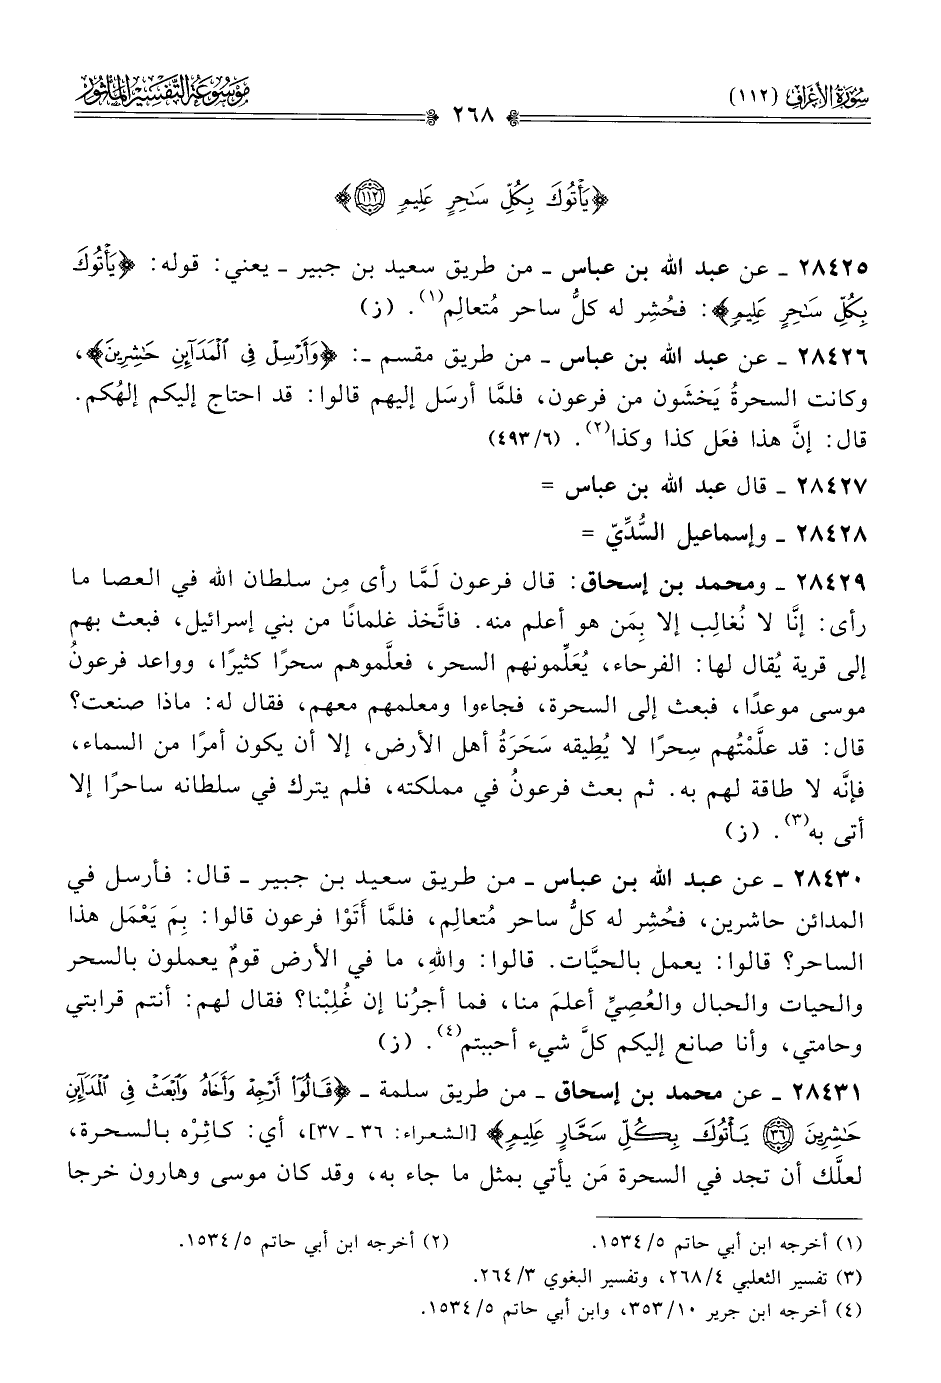 سُورَةُ الأَعْرَافِ (١١٢)
٢٦٨
مَوْسُوعَةُ التَّفْسِيرِ المَأْثُورِ
﴿يَأْتُوكَ بِكُلِّ سَٰحِرٍ عَلِيمٍ ١١٢﴾
٢٨٤٢٥ ـ عن عبد الله بن عباس ـ من طريق سعيد بن جبير ـ يعني: قوله: ﴿يَأْتُوكَ
بِكُلِّ سَٰحِرٍ عَلِيمٍ﴾: فحُشِر له كلُّ ساحر مُتعالِم(١). (ز)
٢٨٤٢٦ ـ عن عبد الله بن عباس ـ من طريق مقسم ـ: ﴿وَأَرْسِلْ فِي الْمَدَآئِنِ حَٰشِرِينَ﴾،
وكانت السحرةُ يَخشَون من فرعون، فلمَّا أرسَل إليهم قالوا: قد احتاج إليكم إلهُكم.
قال: إنَّ هذا فعَل كذا وكذا(٢). (٦/ ٤٩٣)
٢٨٤٢٧ ـ قال عبد الله بن عباس =
٢٨٤٢٨ ـ وإسماعيل السُّدِّيّ =
٢٨٤٢٩ ـ ومحمد بن إسحاق: قال فرعون لَمَّا رأى مِن سلطان الله في العصا ما
رأى: إنَّا لا نُغالِب إلا بِمَن هو أعلم منه. فاتَّخذ غلمانًا من بني إسرائيل، فبعث بهم
إلى قرية يُقال لها: الفرحاء، يُعَلِّمونهم السحر، فعلَّموهم سحرًا كثيرًا، وواعد فرعونُ
موسى موعدًا، فبعث إلى السحرة، فجاءوا ومعلمهم معهم، فقال له: ماذا صنعت؟
قال: قد علَّمْتُهم سِحرًا لا يُطِيقه سَحَرَةُ أهل الأرض، إلا أن يكون أمرًا من السماء،
فإنَّه لا طاقة لهم به. ثم بعث فرعونُ في مملكته، فلم يترك في سلطانه ساحرًا إلا
أتى به(٣). (ز)
٢٨٤٣٠ ـ عن عبد الله بن عباس ـ من طريق سعيد بن جبير ـ قال: فأرسل في
المدائن حاشرين، فحُشِر له كلُّ ساحر مُتعالِم، فلمَّا أَتَوْا فرعون قالوا: بِمَ يَعْمَل هذا
الساحر؟ قالوا: يعمل بالحيَّات. قالوا: واللهِ، ما في الأرض قومٌ يعملون بالسحر
والحيات والحبال والعُصِيِّ أعلمَ منا، فما أجرُنا إن غُلِبْنا؟ فقال لهم: أنتم قرابتي
وحامتي، وأنا صانع إليكم كلَّ شيء أحببتم(٤). (ز)
٢٨٤٣١ ـ عن محمد بن إسحاق ـ من طريق سلمة ـ ﴿قَالُوٓا۟ أَرْجِهْ وَأَخَاهُ وَٱبْعَثْ فِي ٱلْمَدَآئِنِ
حَٰشِرِينَ ٣٦ يَأْتُوكَ بِكُلِّ سَحَّارٍ عَلِيمٍ﴾ [الشعراء: ٣٦ ـ ٣٧]، أي: كاثِرْه بالسحرة،
لعلَّك أن تجد في السحرة مَن يأتي بمثل ما جاء به، وقد كان موسى وهارون خرجا
(١) أخرجه ابن أبي حاتم ٥/ ١٥٣٤. (٢) أخرجه ابن أبي حاتم ٥/ ١٥٣٤.
(٣) تفسير الثعلبي ٤/ ٢٦٨، وتفسير البغوي ٣/ ٢٦٤.
(٤) أخرجه ابن جرير ١٠/ ٣٥٣، وابن أبي حاتم ٥/ ١٥٣٤.